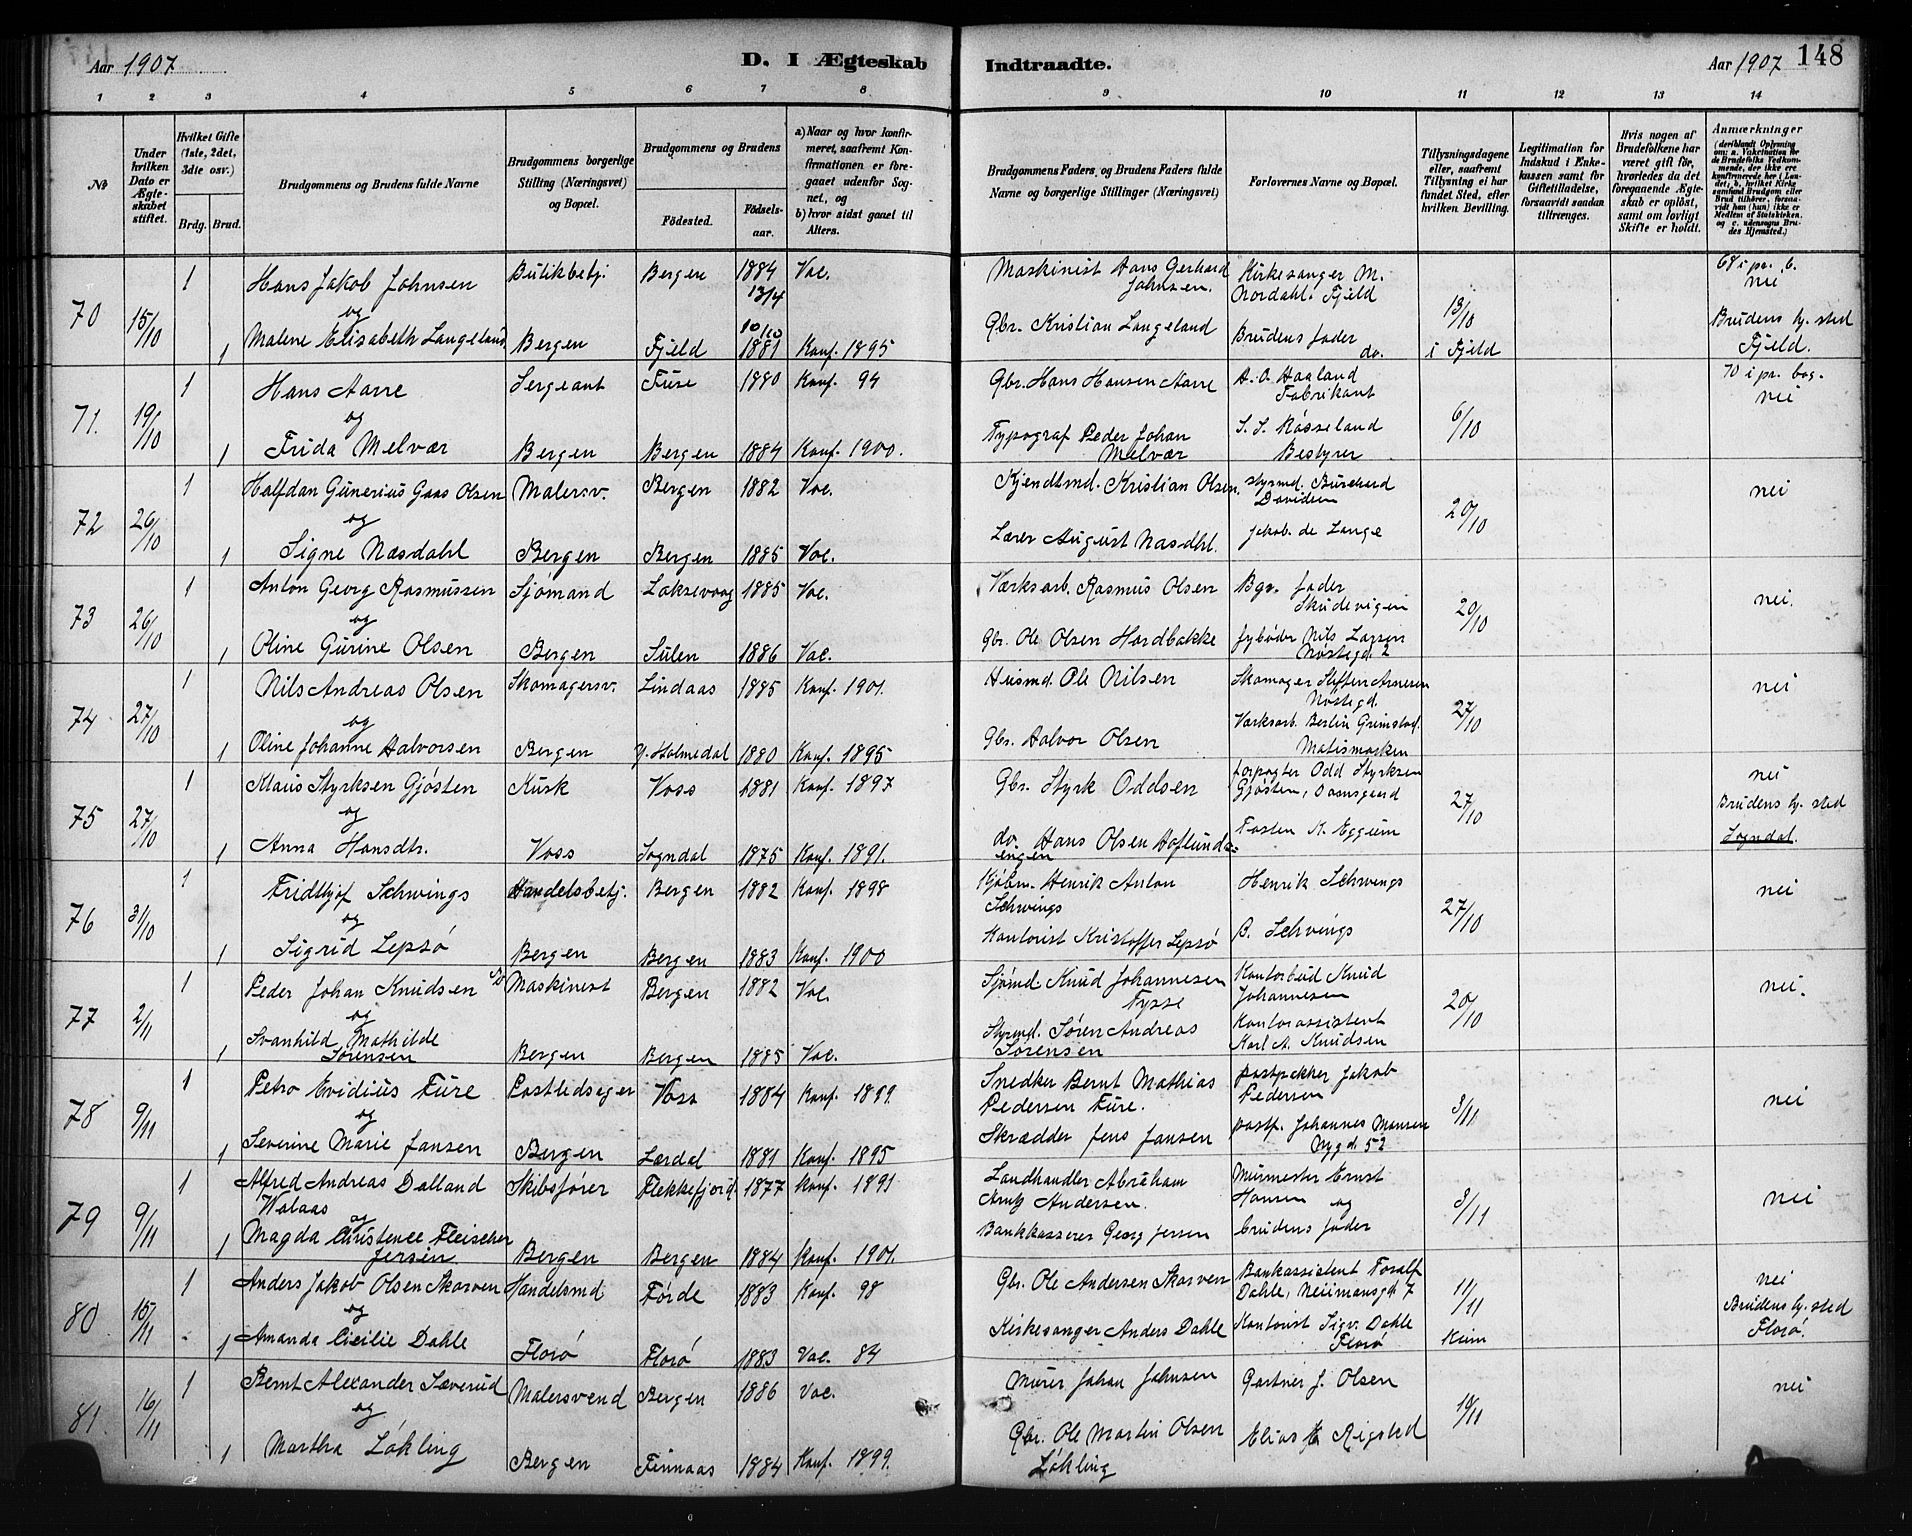 Aar 1907
D. I Ægteskab
Indtraadte.
Aar 1907
148
1 2 3 4 5 6 7 8 9 10 11 12 13 14
No
Under hvilken Dato er Ægteskabet stiftet.
Hvilket Gifte (1ste, 2det, 3die osv.)
Brdg. Brud.
Brudgommens og Brudens fulde Navne
Brudgommens borgerlige Stilling (Næringsvei) og Bopæl.
Brudgommens og Brudens
Fødested.
Fødselsaar.
a) Naar og hvor konfirmeret, saafremt Konfirmationen er foregaaet udenfor Sognet, og
b) hvor sidst gaaet til Alters.
Brudgommens Faders, og Brudens Faders fulde Navne og borgerlige Stillinger (Næringsvei)
Forlovernes Navne og Bopæl.
Tillysningsdagene eller, saafremt Tillysning ei har fundet Sted, efter hvilken Bevilling.
Legitimation for Indskud i Enkekassen samt for Giftetilladelse, forsaavidt saadan tiltrænges.
Hvis nogen af Brudefolkene har været gift før, hvorledes da det foregaaende Ægteskab er opløst, samt om lovligt Skifte er holdt.
Anmærkninger (deriblandt Oplysning om: a. Vakcination for de Brudefolks Vedkommende, der ikke ere konfirmerede her i Landet; b. hvilket Kirkesamfund Brudgom eller Brud tilhører, forsaavidt han (hun) ikke er Medlem af Statskirken, og c. udensogns Brudes Hjemsted.)
70 15/10 1 Hans Jakob Johnsen Butikbetj. Bergen 1884 13/4 Vac. Maskinist Hans Gerhard Johnsen. Kirkesanger M. Nordahl. Fjeld 13/10 68 i pr. b. nei
og
1 Malene Elisabeth Langeland Bergen Fjeld 10/10 1881 Konf. 1895 Gbr. Kristian Langeland Brudens fader do. i Fjeld Brudens hj. sted Fjeld.
71. 19/10 1 Hans Aarre Sergeant Fure 1880 Konf. 94 Gbr. Hans Hansen Aarre A. O. Haaland Fabrikant 6/10 70 i pr. bog. nei
og
1 Frida Melvær Bergen Bergen 1884 Konf. 1900. Typograf Peder Johan Melvær S. S. Røsseland Bestyrer
72 26/10 1 Halfdan Gunerius Gaas Olsen Malersv. Bergen 1882 Vac. Kjendtmd. Kristian Olsen. Styrmd. Burchard Davidsen 20/10 nei
og
1 Signe Næsdahl Bergen Bergen 1885 Vac. Lærer August Næsdhl. Jakob de Lange
73 26/10 1 Anton Georg Rasmussen Sjömand Laksevaag 1885 Vac. Værksarb. Rasmus Olsen Bgr. fader Skudevigen 20/10 nei.
og
1 Oline Gurine Olsen Bergen Sulen 1886 Vac. Gbr. Ole Olsen Hardbakke fyrbøder Nils Larsen Nøstegd. 2
74 27/10 1 Nils Andreas Olsen Skomagersv. Lindaas 1885 Konf. 1901. Husmd. Ole Nilsen Skomager Steffen Arnesen Nøstegd. 27/10 nei
og
1 Oline Johanne Halvorsen Bergen Y. Holmedal 1880 Konf. 1895 Gbr. Halvor Olsen Værksarb. Berlin Grimstad. Matismarken
75 27/10 1 Klaus Styrksen Gjøsten Kusk Voss 1881 Konf. 1897 Gbr. Styrk Oddsen forpagter Odd Styrksen Gjøsten, Damsgaard 27/10 nei
og
1 Anna Hansdtr. Voss Sogndal 1875 Konf. 1891. do. Hans Olsen Hoflundsengen Tosten K. Eggum Brudens hj. sted Sogndal.
76 31/10 1 Fridthjof Schwings Handelsbetj. Bergen 1882 Konf. 1898 Kjøbm. Henrik Anton Schwings Henrik Schwings 27/10 nei
og
1 Sigrid Lepsö Bergen Bergen 1883 Konf. 1900 Kontorist Kristoffer Lepsö B. Schwings
77 2/11 1 Peder Johan Knudsen Maskinist Bergen 1882 Vac. Sjømd. Knud Johannesen Tysse Kontorbud Knud Johannesen 20/10 nei.
og
1 Svanhild Mathilde Sørensen Bergen Bergen 1885 Vac. Styrmd. Søren Andreas Sørensen Kontorassistent Karl A. Knudsen
78 9/11 1 Petro Evidius Fure Postledsager Voss 1884 Konf. 1899. Snedker Bernt Mathias Pedersen Fure. postpakker Jakob Pedersen 3/11 nei
og
1 Severine Marie Jansen Bergen Lærdal 1881 Konf. 1895 Skrædder Jens Jansen postp. Johannes Monsen Nygd. 52
79 9/11 1 Alfred Andreas Dalland Walaas Skibsfører Flekkefjord. 1877 Konf. 1891 Landhandler Abraham Arntz Andersen. Murmester Ernst Hansen og 3/11 nei
og
1 Magda Christence Fleischer Jersin Bergen Bergen 1884 Konf. 1901. Bankkasserer Georg Jersin brudens fader
80 15/11 1 Anders Jakob Olsen Skorven Handelsmd Førde 1883 Konf. 98 Gbr. Ole Andersen Skorven Bankassistent Toralf Dahle, Neumansgd. 7 11/11 nei
og
1 Amanda Cecilie Dahle Florö Florö 1883 Vac. 84 Kirkesanger Anders Dahle Kontorist Sigv. Dahle Florö Kinn Brudens hj. sted Florö.
81. 16/11 1 Bernt Alexander Sæverud Malersvend Bergen 1886 Vac. Murer Johan Johnsen Gartner J. Olsen 10/11 nei
og
1 Martha Løkling Bergen Finnaas 1884 Konf. 1899. Gbr. Ole Martin Olsen Løkling Elias E Rigsted